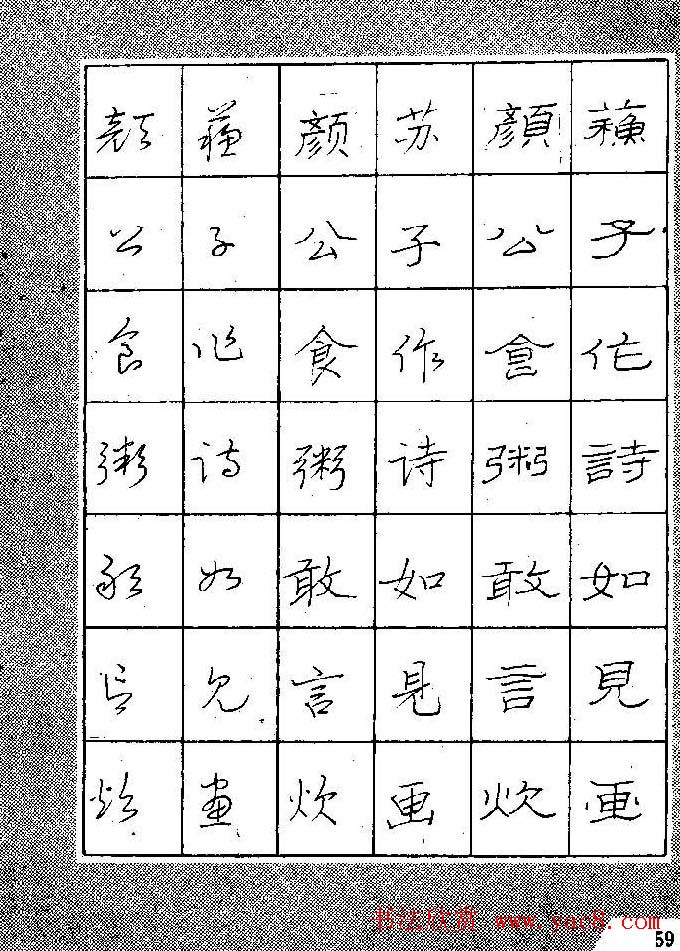 蘓子作詩如見画
顏公食粥敢言炊
苏子作诗如見画
颜公食粥敢言炊
蘓子作诗如见畫
颜公食粥敢言炊
书法欣赏 www.yac8.com
59